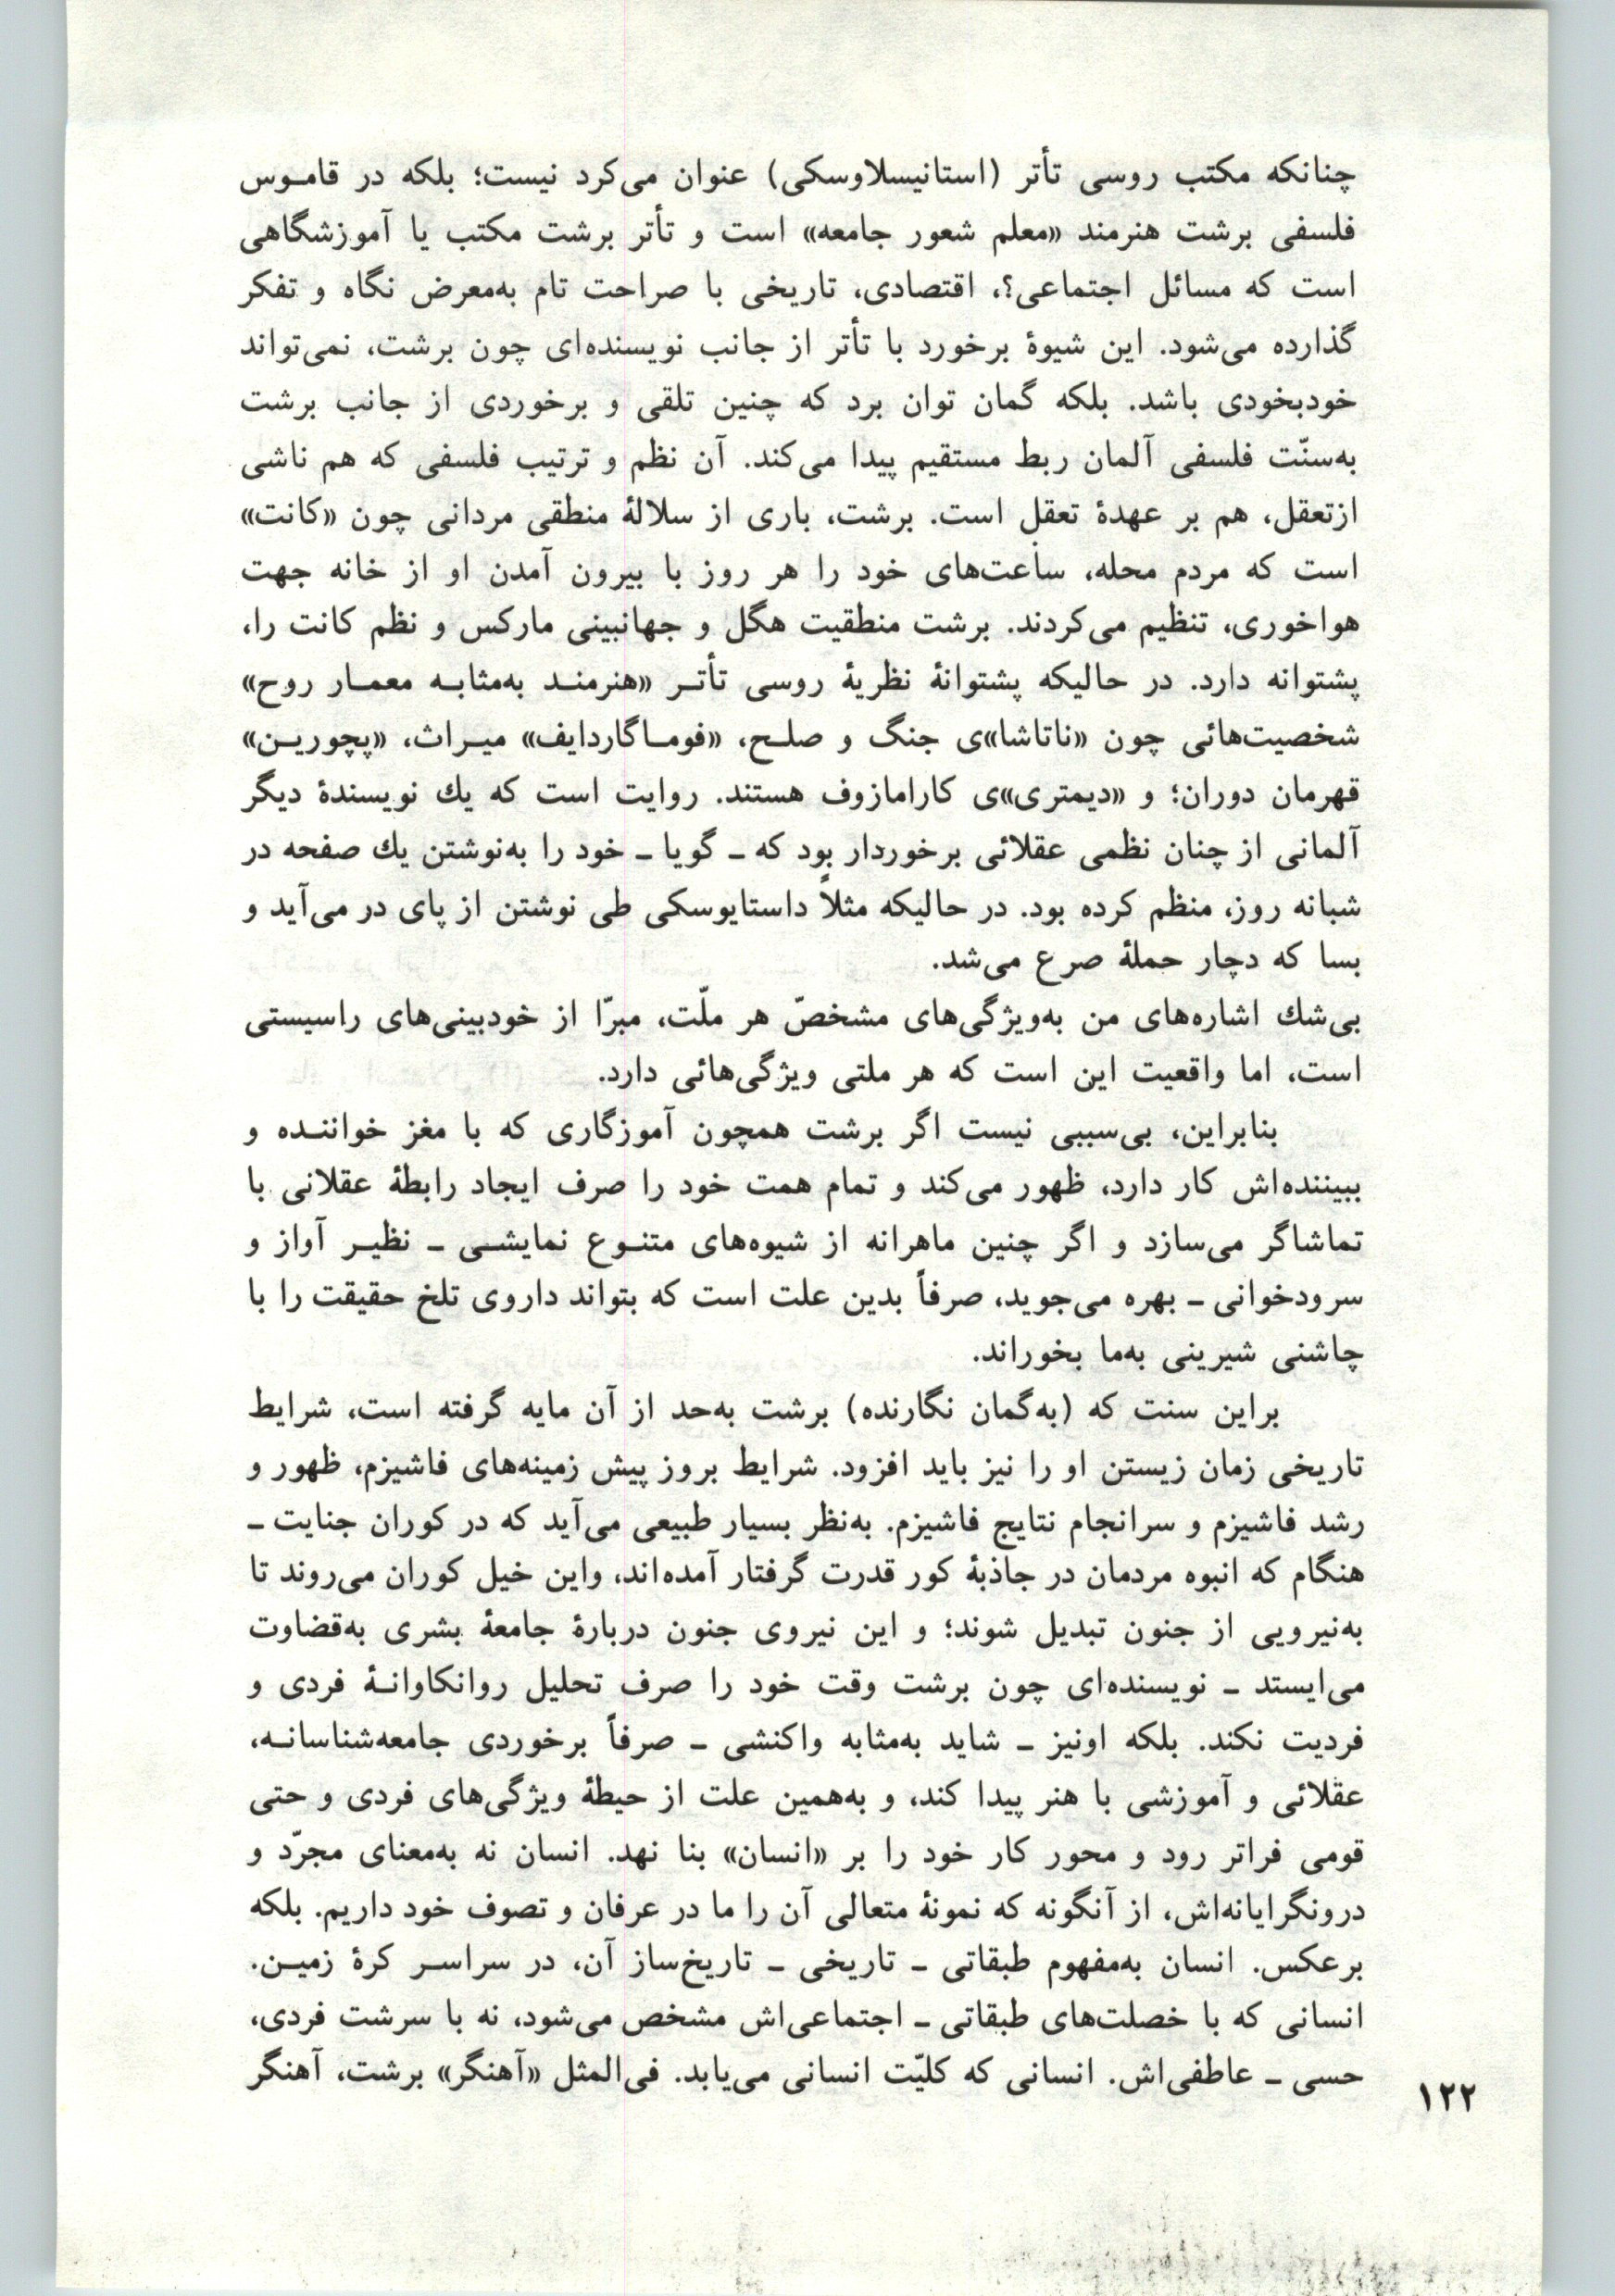 چنانکه مکتب روسی تأتر (استانیسلاوسکی) عنوان می‌کرد نیست؛ بلکه در قاموس
فلسفی برشت هنرمند «معلم شعور جامعه» است و تأتر برشت مکتب یا آموزشگاهی
است که مسائل اجتماعی؟، اقتصادی، تاریخی با صراحت تام به‌معرض نگاه و تفکر
گذارده می‌شود. این شیوهٔ برخورد با تأتر از جانب نویسنده‌ای چون برشت، نمی‌تواند
خودبخودی باشد. بلکه گمان توان برد که چنین تلقی و برخوردی از جانب برشت
به‌سنّت فلسفی آلمان ربط مستقیم پیدا می‌کند. آن نظم و ترتیب فلسفی که هم ناشی
ازتعقل، هم بر عهدهٔ تعقل است. برشت، باری از سلالهٔ منطقی مردانی چون «کانت»
است که مردم محله، ساعت‌های خود را هر روز با بیرون آمدن او از خانه جهت
هواخوری، تنظیم می‌کردند. برشت منطقیت هگل و جهانبینی مارکس و نظم کانت را،
پشتوانه دارد. در حالیکه پشتوانهٔ نظریهٔ روسی تأتر «هنرمند به‌مثابه معمار روح»
شخصیت‌هائی چون «ناتاشا»ی جنگ و صلح، «فوماگاردایف» میراث، «پچورین»
قهرمان دوران؛ و «دیمتری»ی کارامازوف هستند. روایت است که یك نویسندهٔ دیگر
آلمانی از چنان نظمی عقلائی برخوردار بود که ـ گویا ـ خود را به‌نوشتن یك صفحه در
شبانه روز، منظم کرده بود. در حالیکه مثلاً داستایوسکی طی نوشتن از پای در می‌آید و
بسا که دچار حملهٔ صرع می‌شد.
بی‌شك اشاره‌های من به‌ویژگی‌های مشخصّ هر ملّت، مبرّا از خودبینی‌های راسیستی
است، اما واقعیت این است که هر ملتی ویژگی‌هائی دارد.
بنابراین، بی‌سببی نیست اگر برشت همچون آموزگاری که با مغز خواننده و
ببیننده‌اش کار دارد، ظهور می‌کند و تمام همت خود را صرف ایجاد رابطهٔ عقلانی با
تماشاگر می‌سازد و اگر چنین ماهرانه از شیوه‌های متنوع نمایشی ـ نظیر آواز و
سرودخوانی ـ بهره می‌جوید، صرفاً بدین علت است که بتواند داروی تلخ حقیقت را با
چاشنی شیرینی به‌ما بخوراند.
براین سنت که (به‌گمان نگارنده) برشت به‌حد از آن مایه گرفته است، شرایط
تاریخی زمان زیستن او را نیز باید افزود. شرایط بروز پیش زمینه‌های فاشیزم، ظهور و
رشد فاشیزم و سرانجام نتایج فاشیزم. به‌نظر بسیار طبیعی می‌آید که در کوران جنایت ـ
هنگام که انبوه مردمان در جاذبهٔ کور قدرت گرفتار آمده‌اند، واین خیل کوران می‌روند تا
به‌نیرویی از جنون تبدیل شوند؛ و این نیروی جنون دربارهٔ جامعهٔ بشری به‌قضاوت
می‌ایستد ـ نویسنده‌ای چون برشت وقت خود را صرف تحلیل روانکاوانهٔ فردی و
فردیت نکند. بلکه اونیز ـ شاید به‌مثابه واکنشی ـ صرفاً برخوردی جامعه‌شناسانه،
عقلائی و آموزشی با هنر پیدا کند، و به‌همین علت از حیطهٔ ویژگی‌های فردی و حتی
قومی فراتر رود و محور کار خود را بر «انسان» بنا نهد. انسان نه به‌معنای مجرّد و
درونگرایانه‌اش، از آنگونه که نمونهٔ متعالی آن را ما در عرفان و تصوف خود داریم. بلکه
برعکس. انسان به‌مفهوم طبقاتی ـ تاریخی ـ تاریخ‌ساز آن، در سراسر کرهٔ زمین.
انسانی که با خصلت‌های طبقاتی ـ اجتماعی‌اش مشخص می‌شود، نه با سرشت فردی،
حسی ـ عاطفی‌اش. انسانی که کلیّت انسانی می‌یابد. فی‌المثل «آهنگر» برشت، آهنگر
۱۲۲